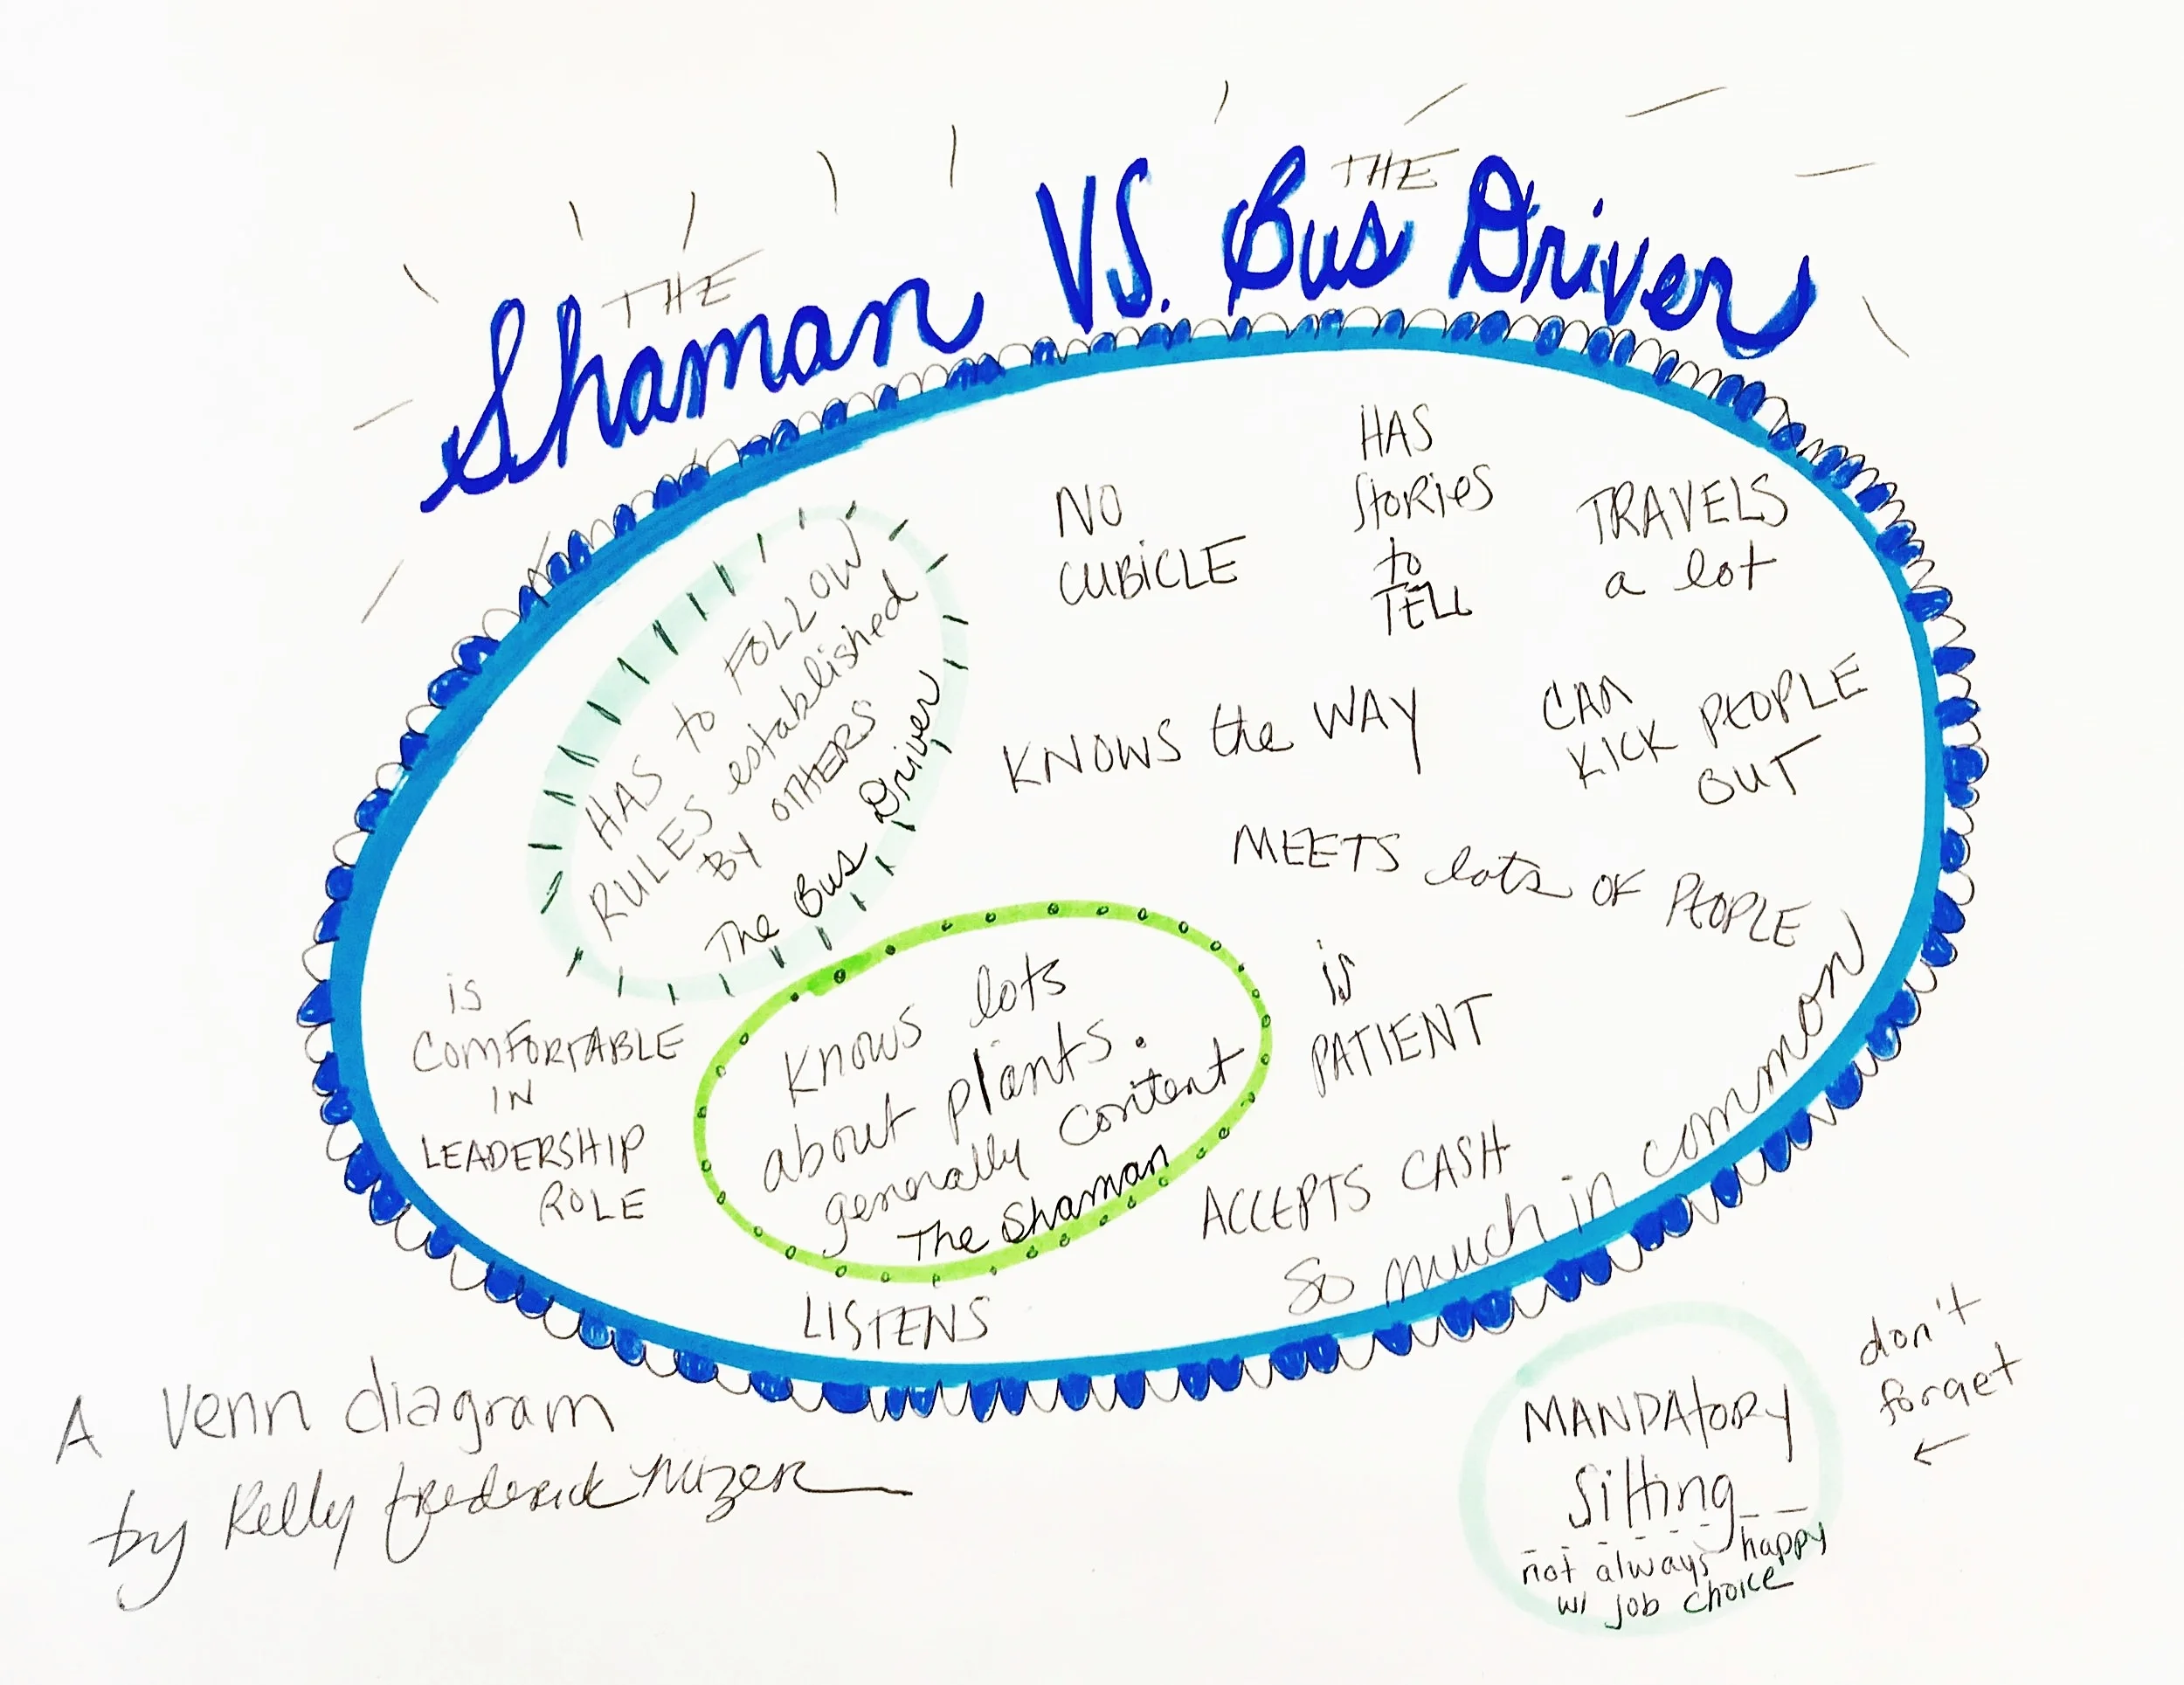 THE
Shaman VS. Bus Driver
THE
NO
CUBICLE
HAS
StoRiES
to
TELL
TRAVELS
a lot
HAS to FOLLOW
RULES established
BY OTHERS
The Bus Driver
KNOWS the WAY
CAN
KICK PEOPLE
OUT
MEETS lots OF PEOPLE
is
COMFORTABLE
IN
LEADERSHIP
ROLE
Knows lots
about plants.
generally content
The Shaman
is
PATIENT
ACCEPTS CASH
So much in common
LISTENS
A Venn diagram
by Kelly Frederick Mizer
don't
forget
MANDAtORY
Sitting
not always happy
w/ job choice